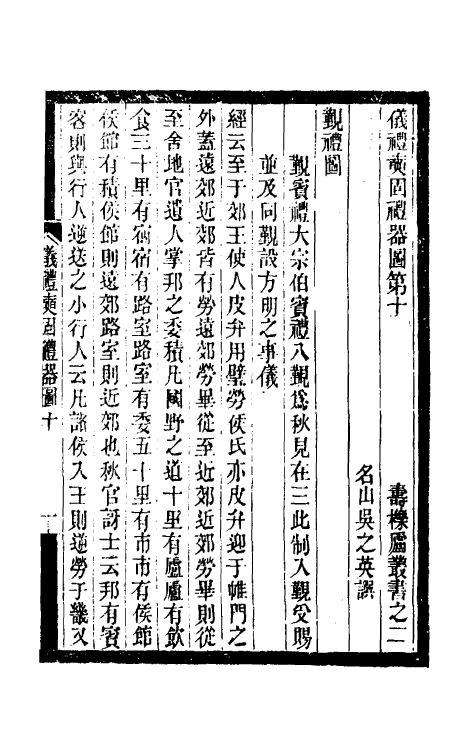 儀禮奭固禮器圖第十
壽櫟廬叢書之二
名山吳之英譔
覲禮圖
覲賓禮大宗伯賓禮八覲爲秋見在三此制入覲受賜
並及同覲設方明之事儀
經云至于郊王使人皮弁用璧勞侯氏亦皮弁迎于帷門之
外蓋遠郊近郊皆有勞遠郊勞畢從至近郊近郊勞畢則從
至舍地官遺人掌邦之委積凡國野之道十里有廬廬有飲
食三十里有宿宿有路室路室有委五十里有市市有侯館
侯館有積侯館則遠郊路室則近郊也秋官訝士云邦有賓
客則與行人逆送之小行人云凡諸侯入王則逆勞于畿又
儀禮奭固禮器圖十
一